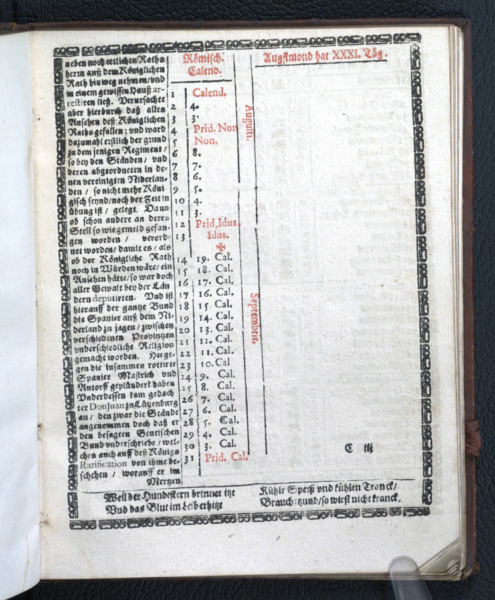 neben noch etlichen Raths
herrn auß dem Königlichen
Rath hinweg nehmen/vnd
in einem gewissen Hauß ar-
restiren ließ. Verursachte
aber hierdurch daß alles
Ansehen deß Königlichen
Raths gefallen; vnd ward
dazumahl erstlich der grund
zu dem jenigen Regiment/
so bey den Ständen/ vnd
deren abgeordneten in de-
nen vereinigten Niderlan-
den/ so nicht mehr Köni
gisch seynd/noch der Zeit in
übung ist/ gelegt. Dann
ob schon andere an deren
Stell so wie gemelt gefan-
gen worden/ verord-
net worden/damit es/als
ob der Königliche Rath
noch in Würden wäre/ein
Ansehen hätte/so war doch
aller Gewalt bey der Län
dern deputirten. Vnd ist
hierauff der gantze Bund
die Spanier auß dem Ni-
derland zu jagen/zwischen
verschiedenen Provintzen
vnderschiedliche Religion
gemacht worden. Herge-
gen die zusammen rottirte
Spanier Mastrich vnd
Antorff geplündert haben
Vnderdessen kam gedach
ter Don Juan zu Lützenburg
an/ den zwar die Stände
angenommen doch daß er
den besagten Gentischen
Bund vnderschriebe/wel-
ches auch auff deß Königs
Ratification von ihme be-
schehen/ worauff er im
Mertzen
Römisch.
Calend.
1 Calend.
2 4.
3 3.
4 Prid. Non
5 Non.
6 8.
7 7.
8 6.
9 5.
10 4.
11 3.
12 Prid. Idus.
13 Idus.
14 19. Cal.
15 18. Cal.
16 17. Cal.
17 16. Cal.
18 15 Cal.
19 14. Cal.
20 13. Cal.
21 12. Cal.
22 11. Cal.
23 10. Cal
24 9. Cal.
25 8. Cal.
26 7. Cal.
27 6. Cal.
28 5. Cal
29 4. Cal.
30 3. Cal.
31 Prid. Cal.
Augusti.
Septembris.
Augstmond hat XXXI. Tåg.
C iij
Weil der Hundsstern brinnet itzt
Vnd das Blut im Leib erhitzt
Kühle Speiß vnd kühlen Tranck/
Brauch itzund/so wirst nicht kranck.